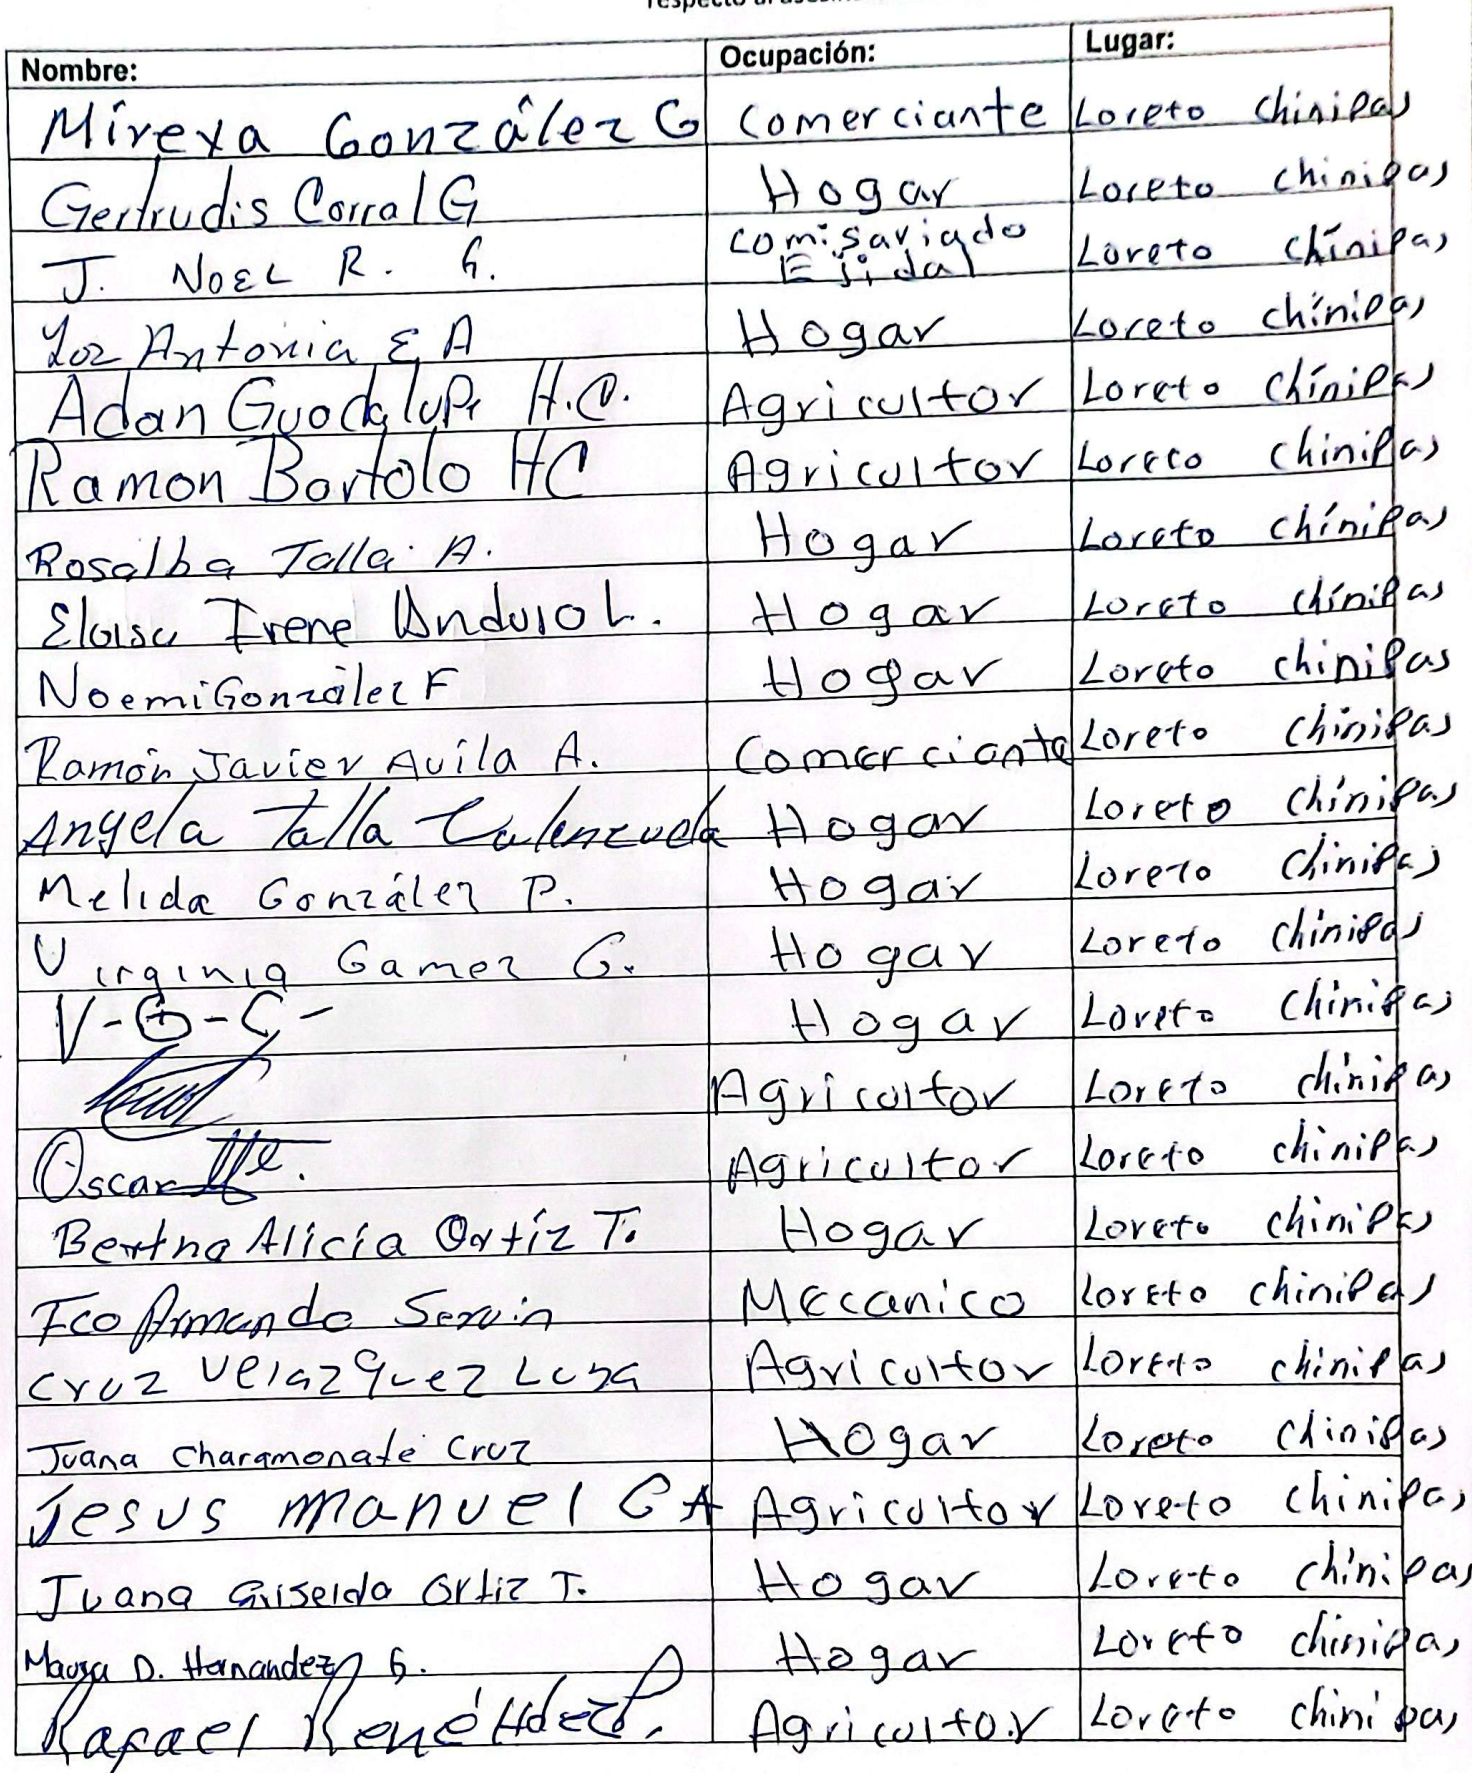 Nombre: Ocupación: Lugar:
Mireya González G Comerciante Loreto Chinipas
Gertrudis Corral G Hogar Loreto chinipas
J. NOEL R. G. Comisariado Ejidal Loreto chínipas
Luz Antonia E A Hogar Loreto chínipas
Adan Guadalupe H.C. Agricultor Loreto Chínipas
Ramon Bartolo HC Agricultor Loreto chinipas
Rosalba Talla A. Hogar Loreto chínipas
Eloisa Irene Anduro L. Hogar Loreto chínipas
Noemi González F Hogar Loreto chinipas
Ramón Javier Avila A. Comerciante Loreto chinipas
Angela Talla Valenzuela Hogar Loreto chínipas
Melida González P. Hogar Loreto Chinipas
Virginia Gamez G. Hogar Loreto chinipas
V-G-C- Hogar Loreto Chinipas
Agricultor Loreto chinipas
Oscar Agricultor Loreto chinipas
Bertha Alicia Ortíz T. Hogar Loreto chinipas
Fco Armando Servin Meccanico Loreto chinipas
Cruz Velazquez Luna Agricultor Loreto chinipas
Juana Charamonate Cruz Hogar Loreto Chinipas
Jesus Manuel C A Agricultor Loreto chinipas
Juana Griselda Ortiz T. Hogar Loreto chinipas
D. Hernandez G. Hogar Loreto chinipas
Rafael René Hdez Agricultor Loreto chinipas